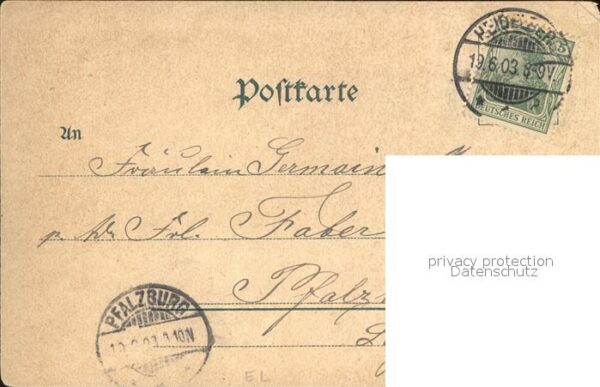 HEIDELBERG
19.6.03.8-9V.
DEUTSCHES REICH
Postkarte
An
Fräulein Germain
p. Adr. Frl. Faber
Pfalz
privacy protection
Datenschutz
PFALZBURG
19.6.03.9.10N
EL